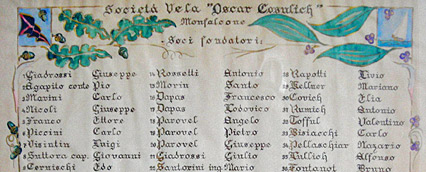 Società Vela "Oscar Cosulich"
Monfalcone
Soci fondatori:
1 Giadrossi Giuseppe 14 Rossetti Antonio 28 Rapotti Livio
2 Agapito conte Pio 15 Morin Santo 29 Kellner Mariano
3 Marini Carlo 16 Dapas Francesco 30 Covich Elia
4 Nicoli Giuseppe 17 Dapas Lodovico 31 Rumich Antonio
5 Franco Ettore 18 Parovel Angelo 32 Tofful Valentino
6 Piccini Carlo 19 Parovel Pietro 33 Bisiacchi Carlo
7 Visintin Luigi 20 Parovel Giuseppe 34 Pellaschiar Nazario
8 Suttora cap. Giovanni 21 Giadrossi Giulio 35 Alfonso
9 Cernischi Edo 22 Santorini ing. Mario 36 Fontanot Bruno